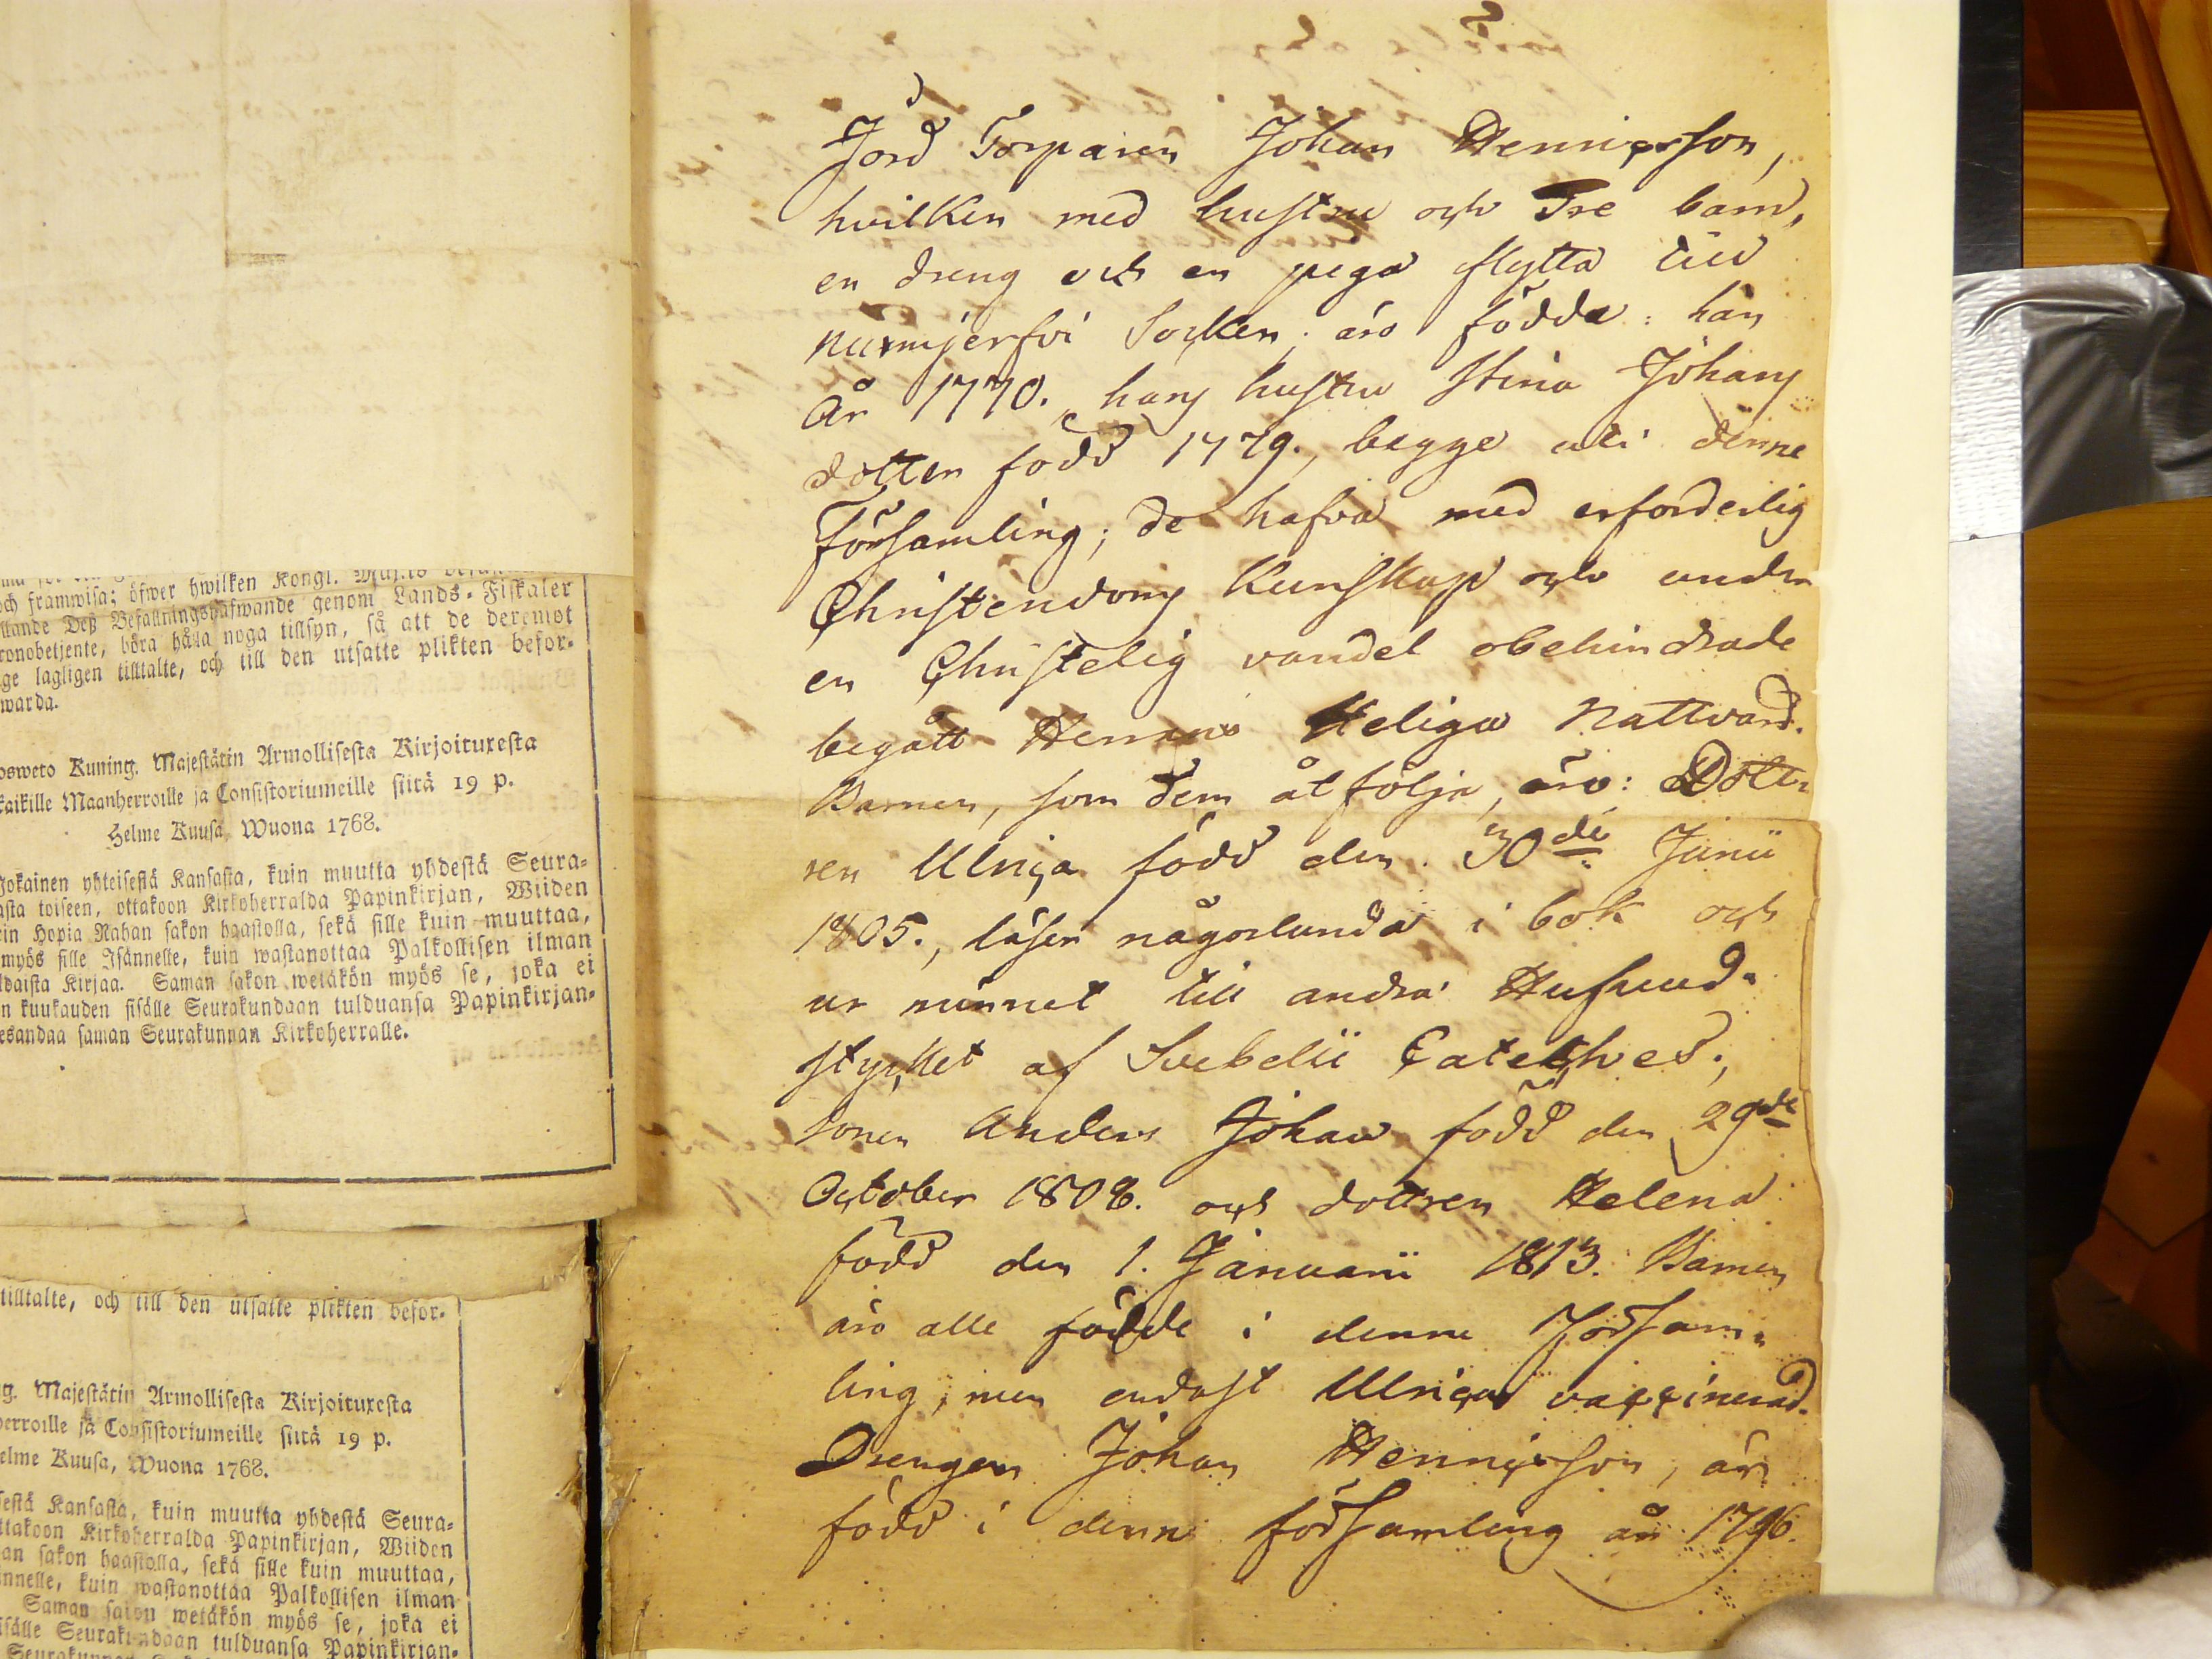 och framwisa; öfwer hwilken Kongl.
Befallningshafwande genom Lands-Fiskaler
böra hålla noga tillsyn, så att de deremot
lagligen tilltalte, och till den utsatte plikten befor-
Kuning. Majestätin Armollisesta Kirjoituxesta
Maanherroille ja Consistoriumeille siitä 19 p.
Helme Kuusa, Wuona 1768.
Jokainen yhteisestä Kansasta, kuin muutta yhdestä Seura-
toiseen, ottakoon Kirkoherralda Papinkirjan, Wiiden
Hopia Rahan sakon haastolla, sekä sille kuin muuttaa,
myös sille Isännelle, kuin wastanottaa Palkollisen ilman
Kirjaa. Saman sakon wetäkön myös se, joka ei
kuukauden sisälle Seurakundaan tulduansa Papinkirjan-
saman Seurakunnan Kirkoherralle.
tilltalte, och till den utsatte plikten befor-
Majestätin Armollisesta Kirjoituxesta
ja Consistoriumeille siitä 19 p.
Kuusa, Wuona 1768.
Kansasta, kuin muutta yhdestä Seura-
Kirkoherralda Papinkirjan, Wiiden
sakon haastolla, sekä sille kuin muuttaa,
kuin wastanottaa Palkollisen ilman
Saman sakon wetäkön myös se, joka ei
Seurakundaan tulduansa Papinkirjan-
Jord Torparen Johan Henricsson,
hvilken med hustru och Tre barn,
en dreng och en piga flytta till
Nurmjerfvi Socken; äro födda: han
År 1770. hans hustru Stina Johans
dotter född 1779., begge uti denne
Församling; de hafva med erforderlig
Christendoms Kunskap och under
en Christelig vandel obehindrade
begått Herrans Heliga Nattvard.
Barnen, som dem åtfölja, äro: Dött-
ren Ulrica född den 30de Junii
1805., läser någorlunda i bok och
ur minnet till andra Hufvud-
stycket af Svebelii Cateches;
sonen Anders Johan född den 29de
October 1808. och dottren Helena
född den 1. Januarii 1813. Barnen
äro alle födde i denne Försam-
ling, men endast Ulrica vaccinerad.
Drengen Johan Henricsson, är
född i denne församling år 1796.